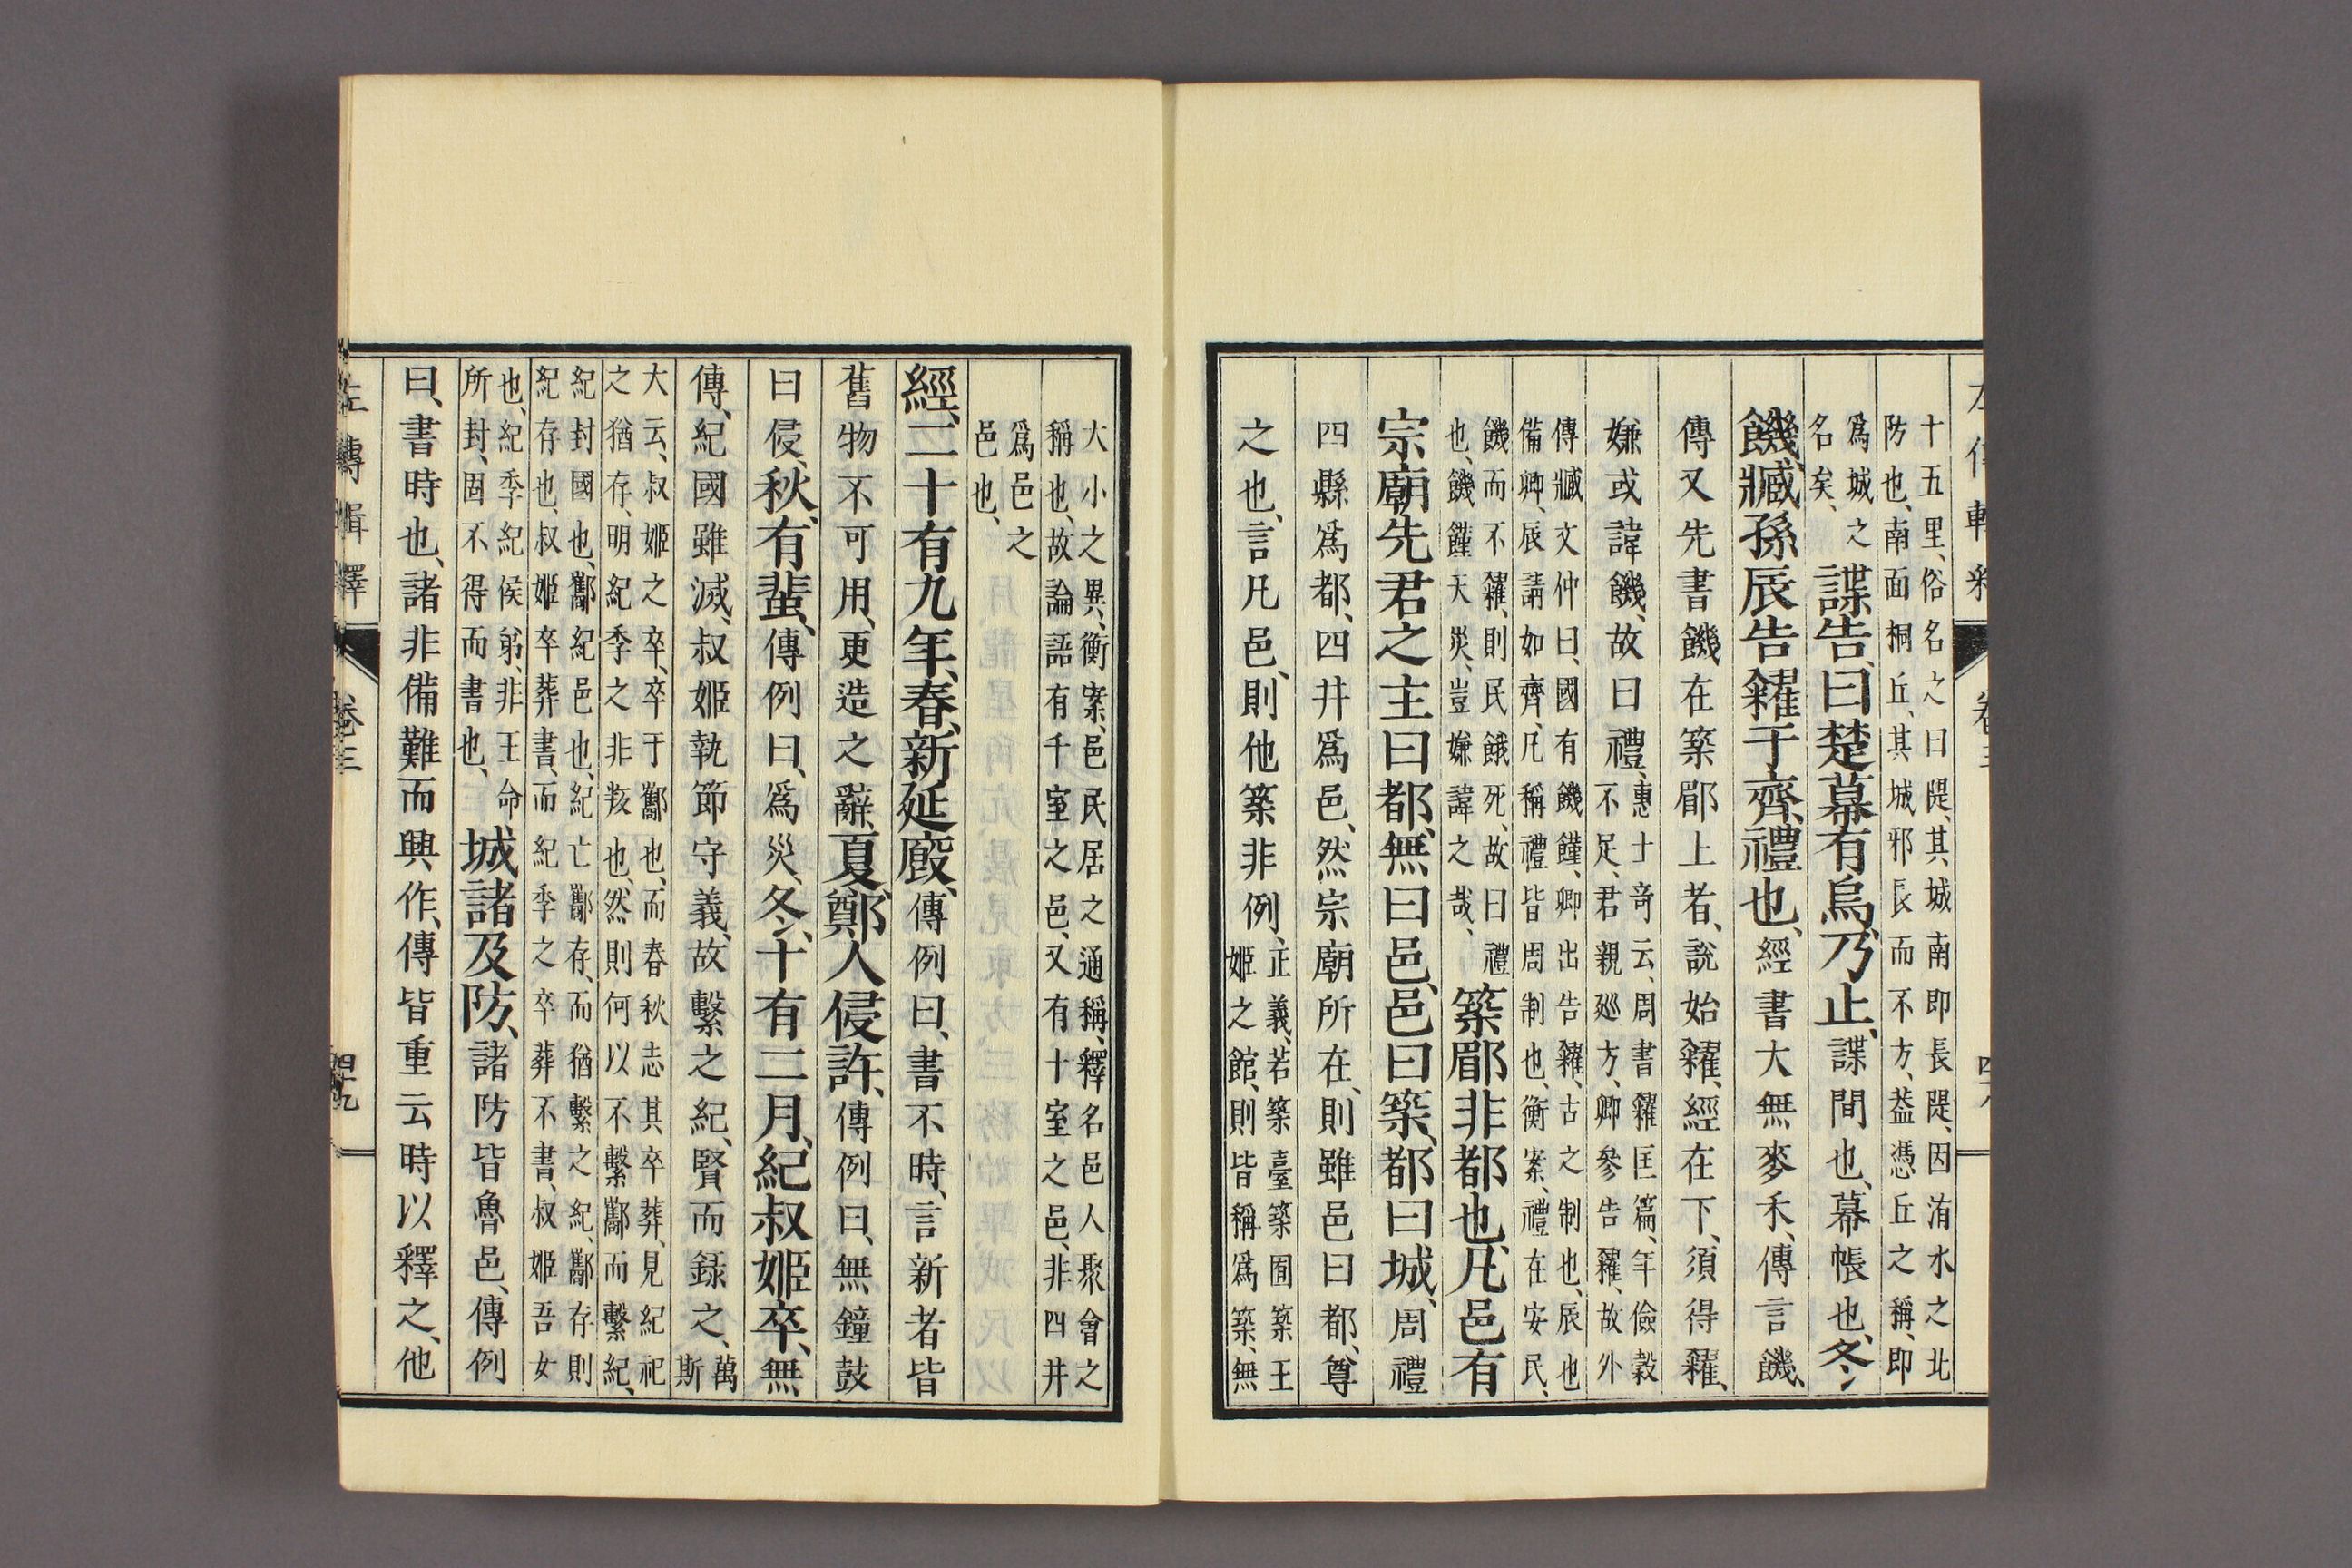 十五里、俗名之曰隄、其城南即長隄、因洧水之北
防也、南面桐丘、其城邪長而不方、葢憑丘之稱、即
爲城之
名矣、
諜告、曰楚幕有烏、乃止、諜間也、幕帳也、冬、
饑、臧孫辰告糴于齊、禮也、經書大無麥禾、傳言饑、
傳又先書饑在築郿上者、說始糴、經在下、須得糴、
嫌或諱饑、故曰禮、
惠士奇云、周書糴匡篇、年儉穀
不足、君親廵方、卿參告糴、故外
傳臧文仲曰、國有饑饉、卿出告糴、古之制也、辰也
備卿、辰請如齊、凡稱禮皆周制也、衡案、禮在安民、
饑而不糴、則民餓死、故曰禮
也、饑饉天災、豈嫌諱之哉、
築郿非都也、凡邑有
宗廟先君之主曰都、無曰邑、邑曰築、都曰城、周禮
四縣爲都、四井爲邑、然宗廟所在、則雖邑曰都、尊
之也、言凡邑、則他築非例、
正義、若築臺築囿築王
姬之館、則皆稱爲築、無
大小之異、衡案、邑民居之通稱、釋名邑人聚會之
稱也、故論語有千室之邑、又有十室之邑、非四井
爲邑之
邑也、
經、二十有九年、春、新延廄、傳例曰、書不時、言新者皆
舊物不可用、更造之辭、夏、鄭人侵許、傳例曰、無鐘鼓
曰侵、秋、有蜚、傳例曰、爲災、冬、十有二月、紀叔姬卒、無
傳、紀國雖滅、叔姬執節守義、故繫之紀、賢而錄之、
萬
斯
大云、叔姬之卒、卒于酅也、而春秋志其卒葬、見紀祀
之猶存、明紀季之非叛也、然則何以不繫酅而繫紀、
紀封國也、酅紀邑也、紀亡酅存、而猶繫之紀、酅存則
紀存也、叔姬卒葬書、而紀季之卒葬不書、叔姬吾女
也、紀季紀侯弟、非王命
所封、固不得而書也、
城諸及防、諸防皆魯邑、傳例
曰、書時也、諸非備難而興作、傳皆重云時以釋之、他
左傳輯釋 卷三 四十九